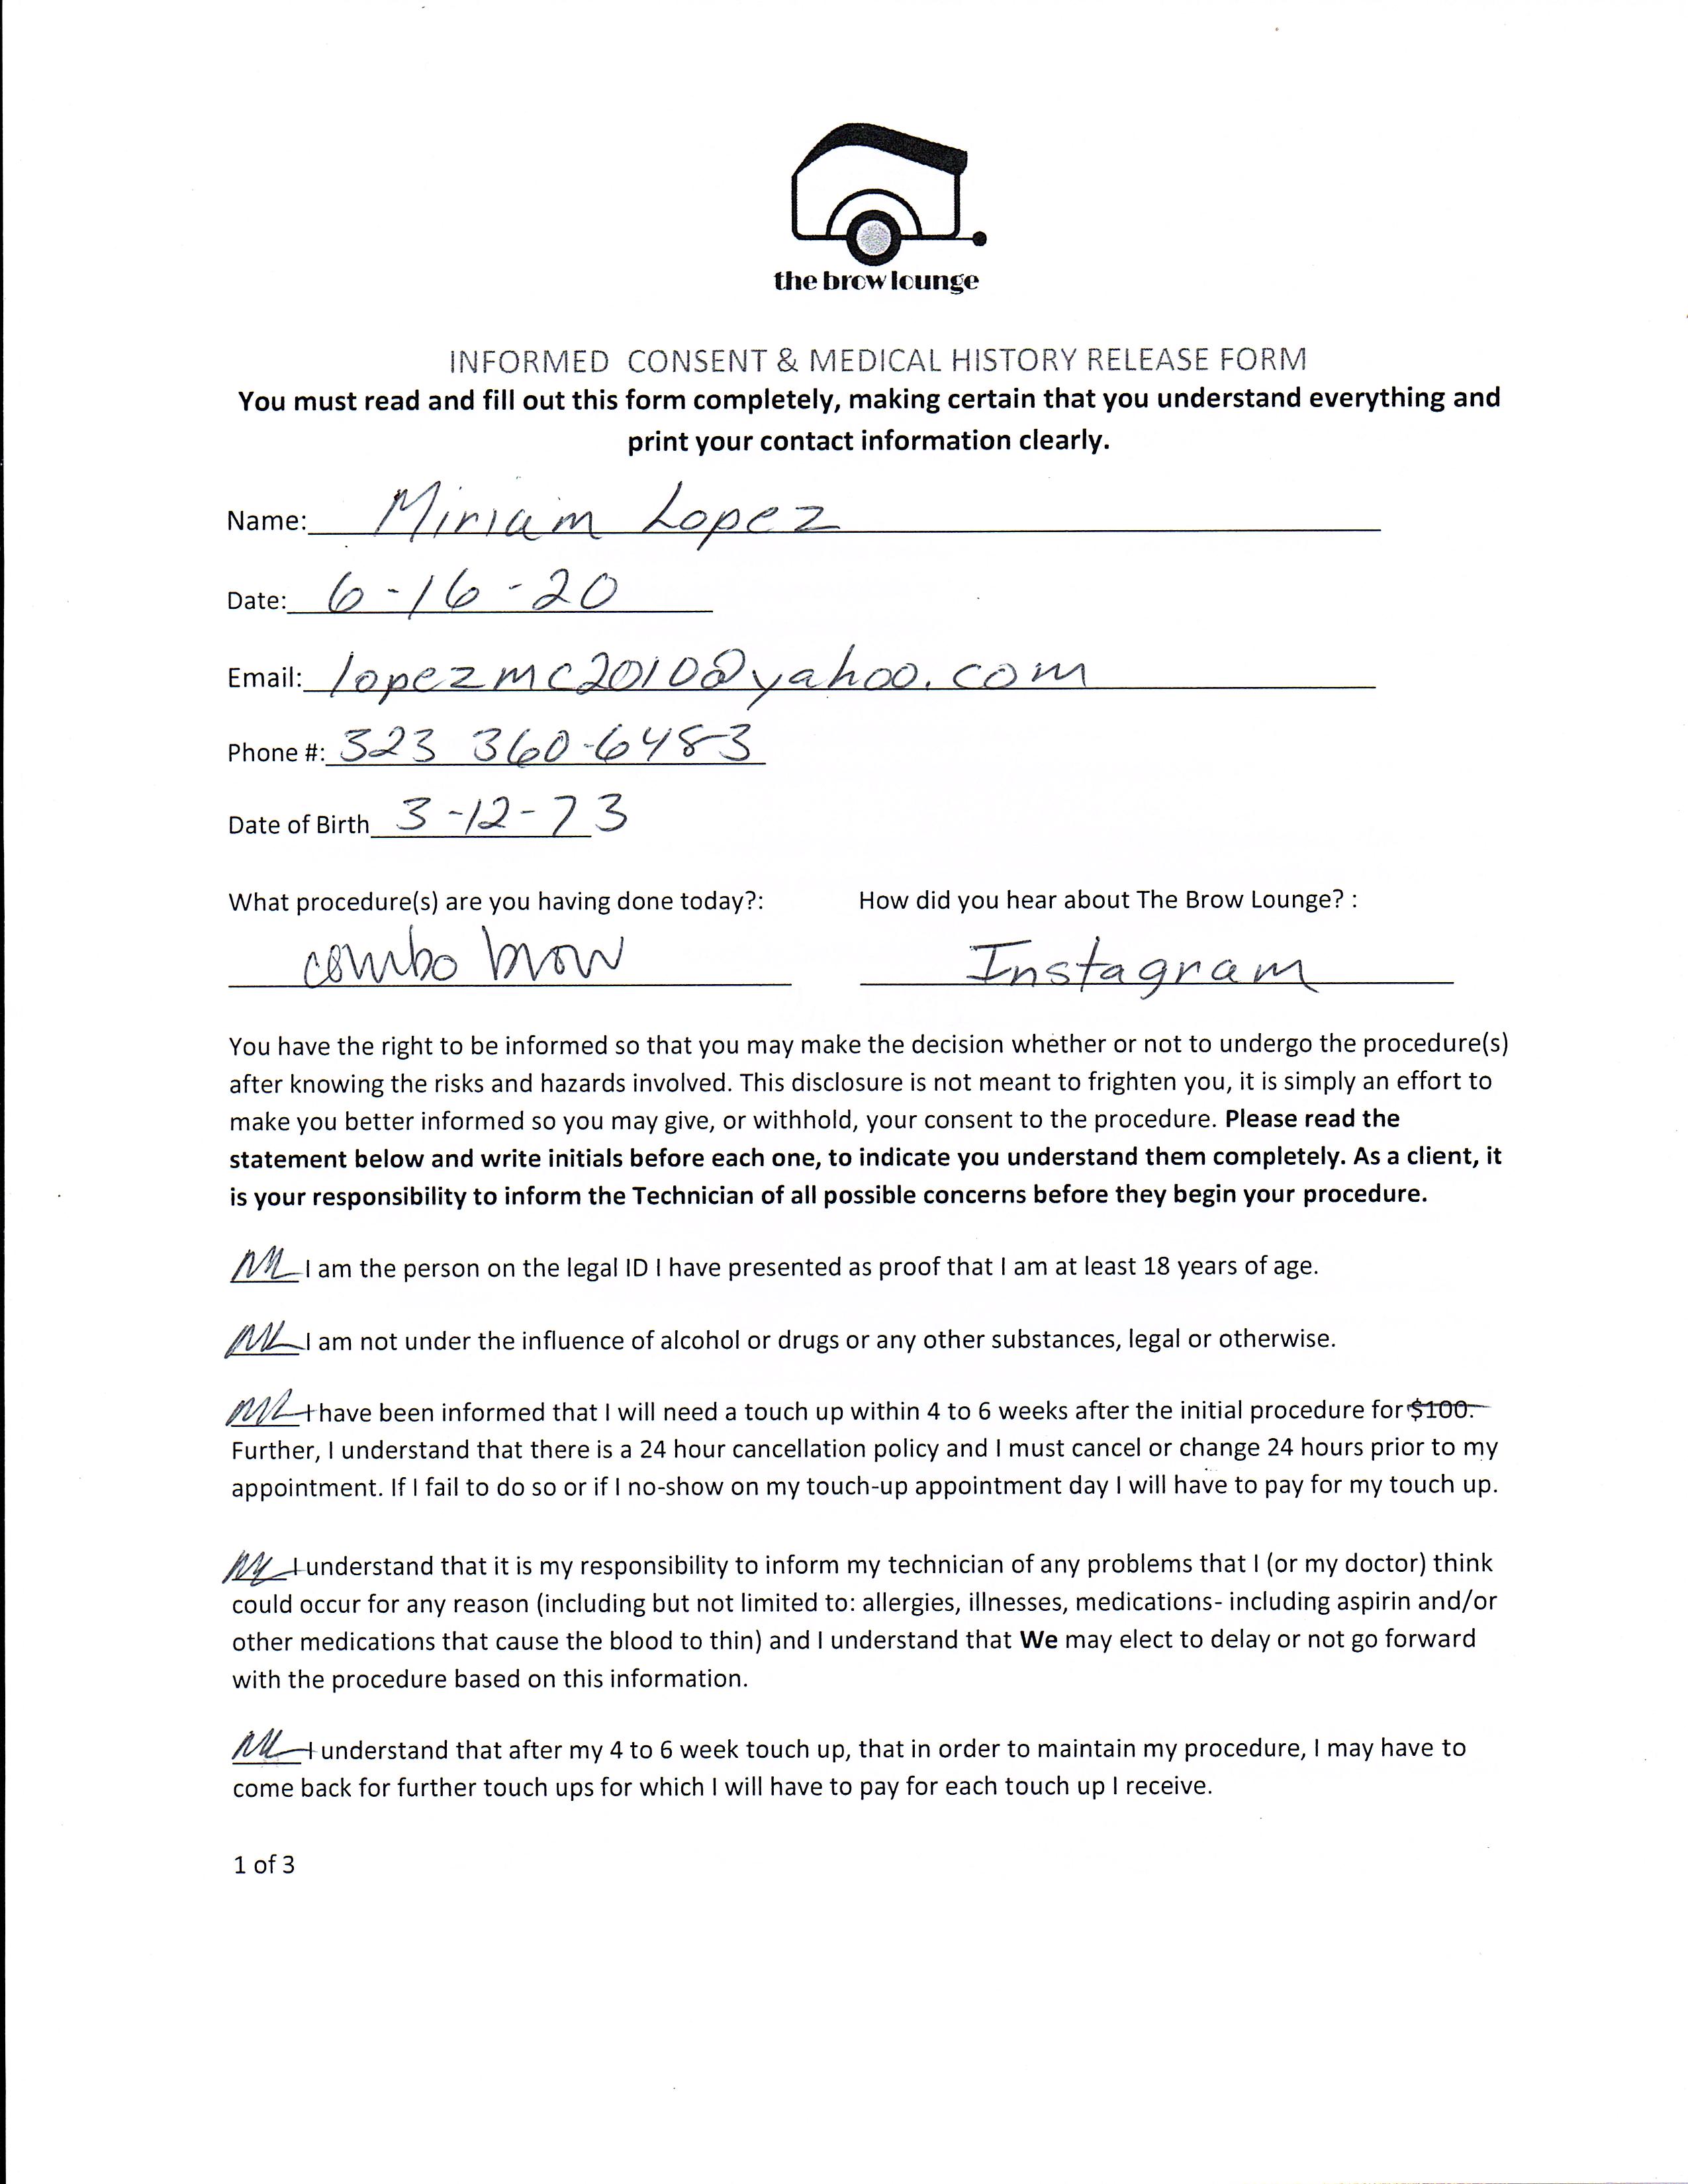 the brow lounge
INFORMED CONSENT & MEDICAL HISTORY RELEASE FORM
You must read and fill out this form completely, making certain that you understand everything and
print your contact information clearly.
Name: Miriam Lopez
Date: 6-16-20
Email: lopezmc2010@yahoo.com
Phone #: 323 360-6483
Date of Birth 3-12-73
What procedure(s) are you having done today?: How did you hear about The Brow Lounge? :
combo brow Instagram
You have the right to be informed so that you may make the decision whether or not to undergo the procedure(s)
after knowing the risks and hazards involved. This disclosure is not meant to frighten you, it is simply an effort to
make you better informed so you may give, or withhold, your consent to the procedure. Please read the
statement below and write initials before each one, to indicate you understand them completely. As a client, it
is your responsibility to inform the Technician of all possible concerns before they begin your procedure.
ML I am the person on the legal ID I have presented as proof that I am at least 18 years of age.
ML I am not under the influence of alcohol or drugs or any other substances, legal or otherwise.
ML I have been informed that I will need a touch up within 4 to 6 weeks after the initial procedure for $100.
Further, I understand that there is a 24 hour cancellation policy and I must cancel or change 24 hours prior to my
appointment. If I fail to do so or if I no-show on my touch-up appointment day I will have to pay for my touch up.
ML I understand that it is my responsibility to inform my technician of any problems that I (or my doctor) think
could occur for any reason (including but not limited to: allergies, illnesses, medications- including aspirin and/or
other medications that cause the blood to thin) and I understand that We may elect to delay or not go forward
with the procedure based on this information.
ML I understand that after my 4 to 6 week touch up, that in order to maintain my procedure, I may have to
come back for further touch ups for which I will have to pay for each touch up I receive.
1 of 3